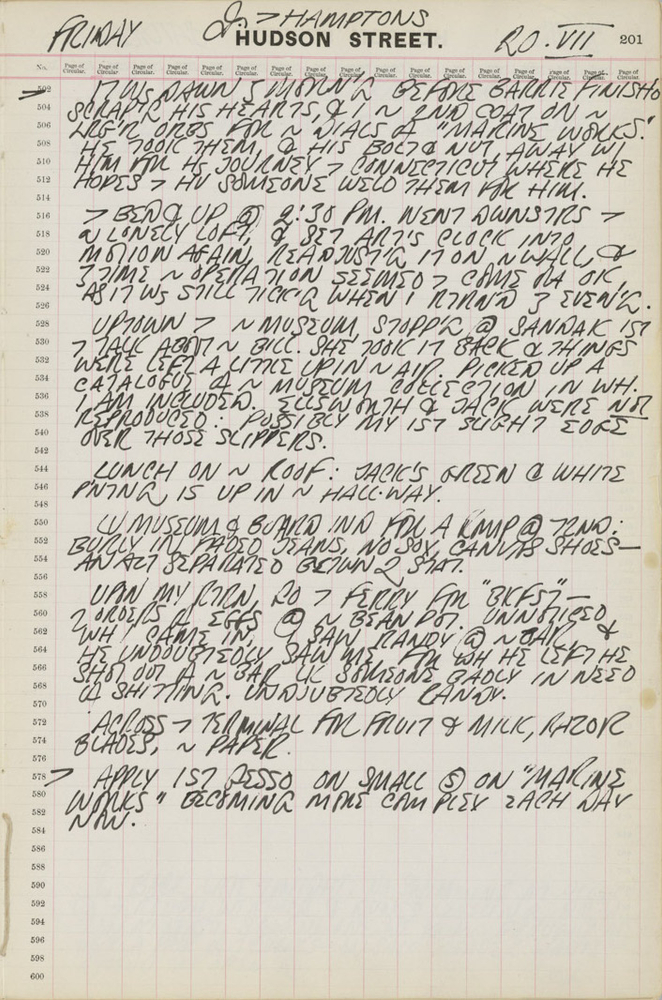 FRIDAY J. > HAMPTONS 20. VII
HUDSON STREET. 201
No. Page of Circular. Page of Circular. Page of Circular. Page of Circular. Page of Circular. Page of Circular. Page of Circular. Page of Circular. Page of Circular. Page of Circular. Page of Circular. Page of Circular. Page of Circular. Page of Circular. Page of Circular.
502 DAWN BEFORE BARRIE FINISH'D
504 SCRAP'G HIS HEARTS, & I ~ 2ND COAT ON ~
506 LRG'R ORBS FOR ~ DIALS OF "MARINE WORKS."
508 HE TOOK THEM, & HIS BOLT & NUT, AWAY WI
510 HIM FOR HS JOURNEY > CONNECTICUT WHERE HE
512 HOPES > HV SOMEONE WELD THEM FOR HIM.
514
516 > BED & UP @ 2:30 PM. WENT DWNSTRS >
518 ~ LONELY LOFT, & SET ART'S CLOCK INTO
520 MOTION AGAIN, READJUST'G IT ON ~ WALL, &
522 TIME ~ OPERATION SEEMED > COME OFF OK,
524 AS IT WS STILL TICK'G WHEN I RTRN'D EVEN'G.
526
528 UPTOWN > ~ MUSEUM, STOPP'G @ SANDAK 1ST
530 > TALK ABOUT ~ BILL. SHE TOOK IT BACK & THINGS
532 WERE LEFT A LITTLE UP IN ~ AIR. PICKED UP A
534 CATALOGUE OF ~ MUSEUM COLLECTION IN WH.
536 I AM INCLUDED. ELLSWORTH & JACK WERE NOT
538 REPRODUCED: POSSIBLY MY 1ST SLIGHT EDGE
540 OVER THOSE SLIPPERS.
542
544 LUNCH ON ~ ROOF: JACK'S GREEN & WHITE
546 PNTNG IS UP IN ~ HALL-WAY.
548
550 LV MUSEUM & BOARD IND FOR A RMP @ 72ND:
552 BURLY IN FADED JEANS, NO SOX, CANVAS SHOES—
554 AN ACT SEPARATED BETWN 2 STAT.
556
558 UPON MY RTRN, GO > FERRY FOR "BKFST" —
560 2 ORDERS OF EGGS @ ~ BEAN POT. UNNOTICED
562 WH I CAME IN, I SAW RANDY @ ~ BAR, &
564 HE UNDOUBTEDLY SAW ME, FOR WH HE LEFT HE
566 SHOT OUT OF ~ BAR LK SOMEONE BADLY IN NEED
568 OF SHITTING. UNDOUBTEDLY RANDY.
570
572 ACROSS > TERMINAL FOR FRUIT & MILK, RAZOR
574 BLADES, ~ PAPER.
576
578 > APPLY 1ST GESSO ON SMALL ⑤ ON "MARINE
580 WORKS" BECOMING MORE COMPLEX EACH DAY
582 NOW.
584
586
588
590
592
594
596
598
600